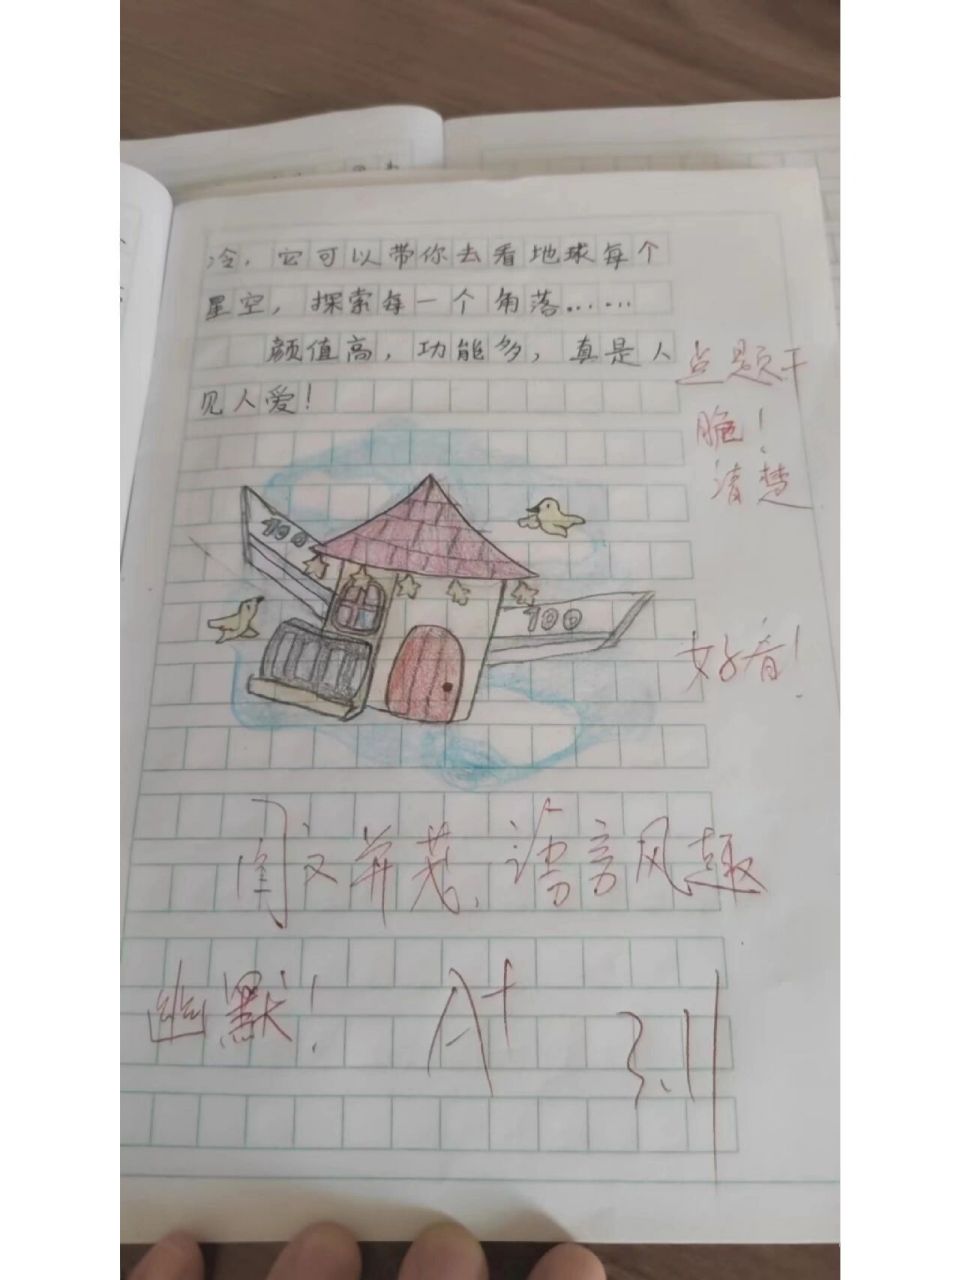 冷,它可以带你去看地球每个
星空,探索每一个角落……
颜值高,功能多,真是人
见人爱!
点题干
脆!
清楚
100
100
好看!
图文并茂,语言风趣
幽默! A+ 3.11